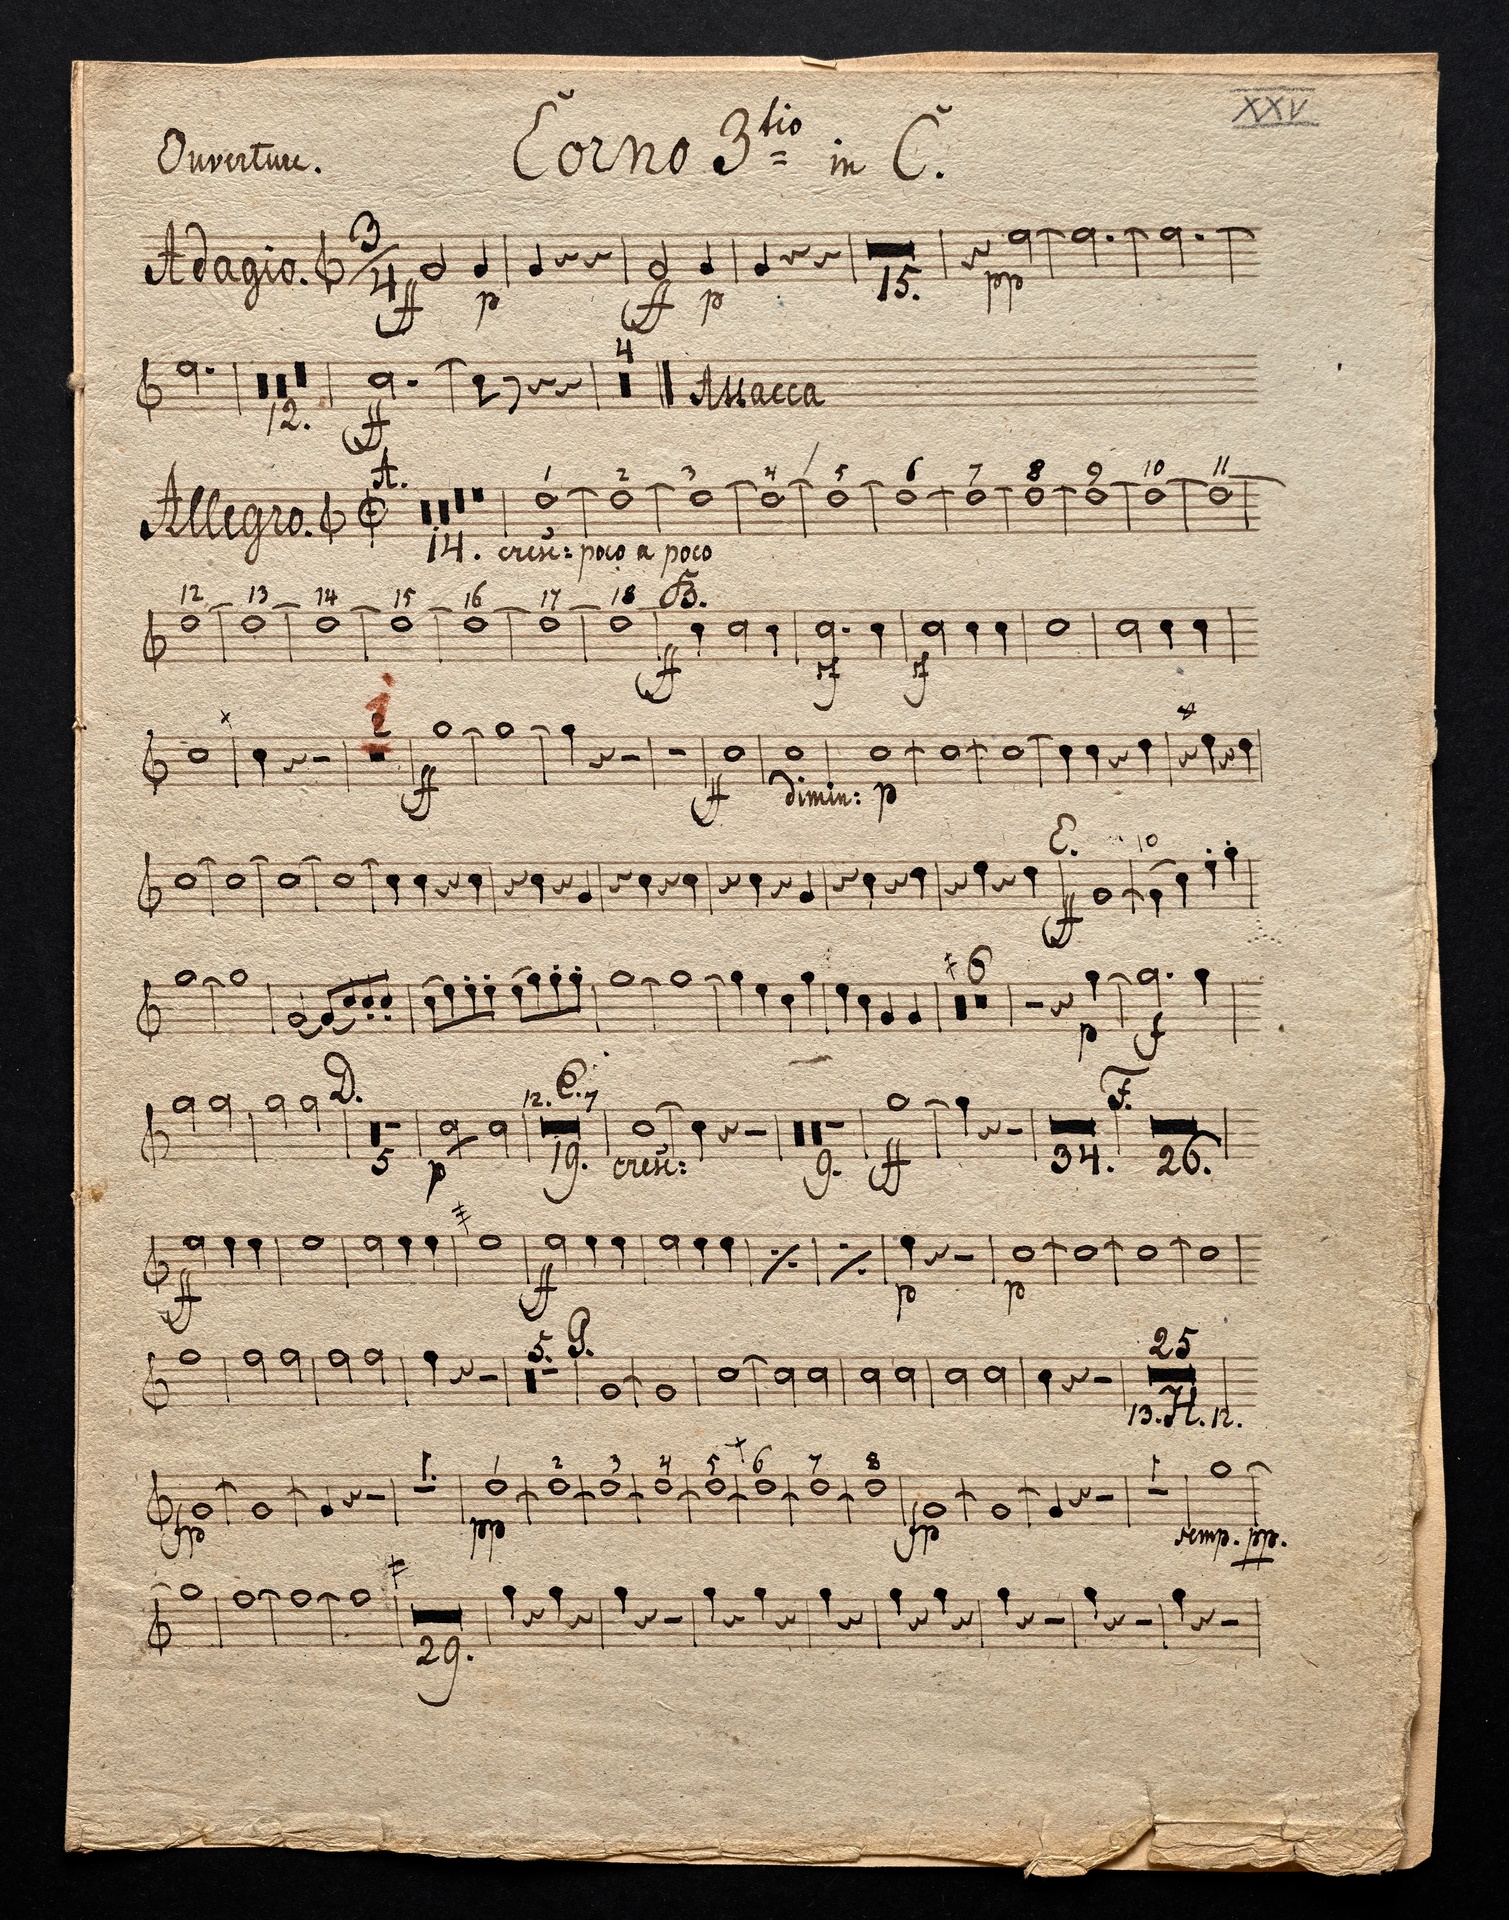 XXV
Ouverture. Corno 3tio in C.
Adagio. 3/4 ff p ff p 15. pp
12. ff 4 Attacca
A. 1 2 3 4 5 6 7 8 9 10 11
Allegro. 14. cresc: poco a poco
12 13 14 15 16 17 18 B.
ff sf sf
ff ff dimin: p
E. 10
ff
6
p f
D. 12. C. 7 F.
5 p 19. cresc: 9. ff 34. 26.
ff ff p p
5. G. 25
13. H. 12.
1. 1 2 3 4 5 6 7 8 1
fp pp fp semp. pp.
29.